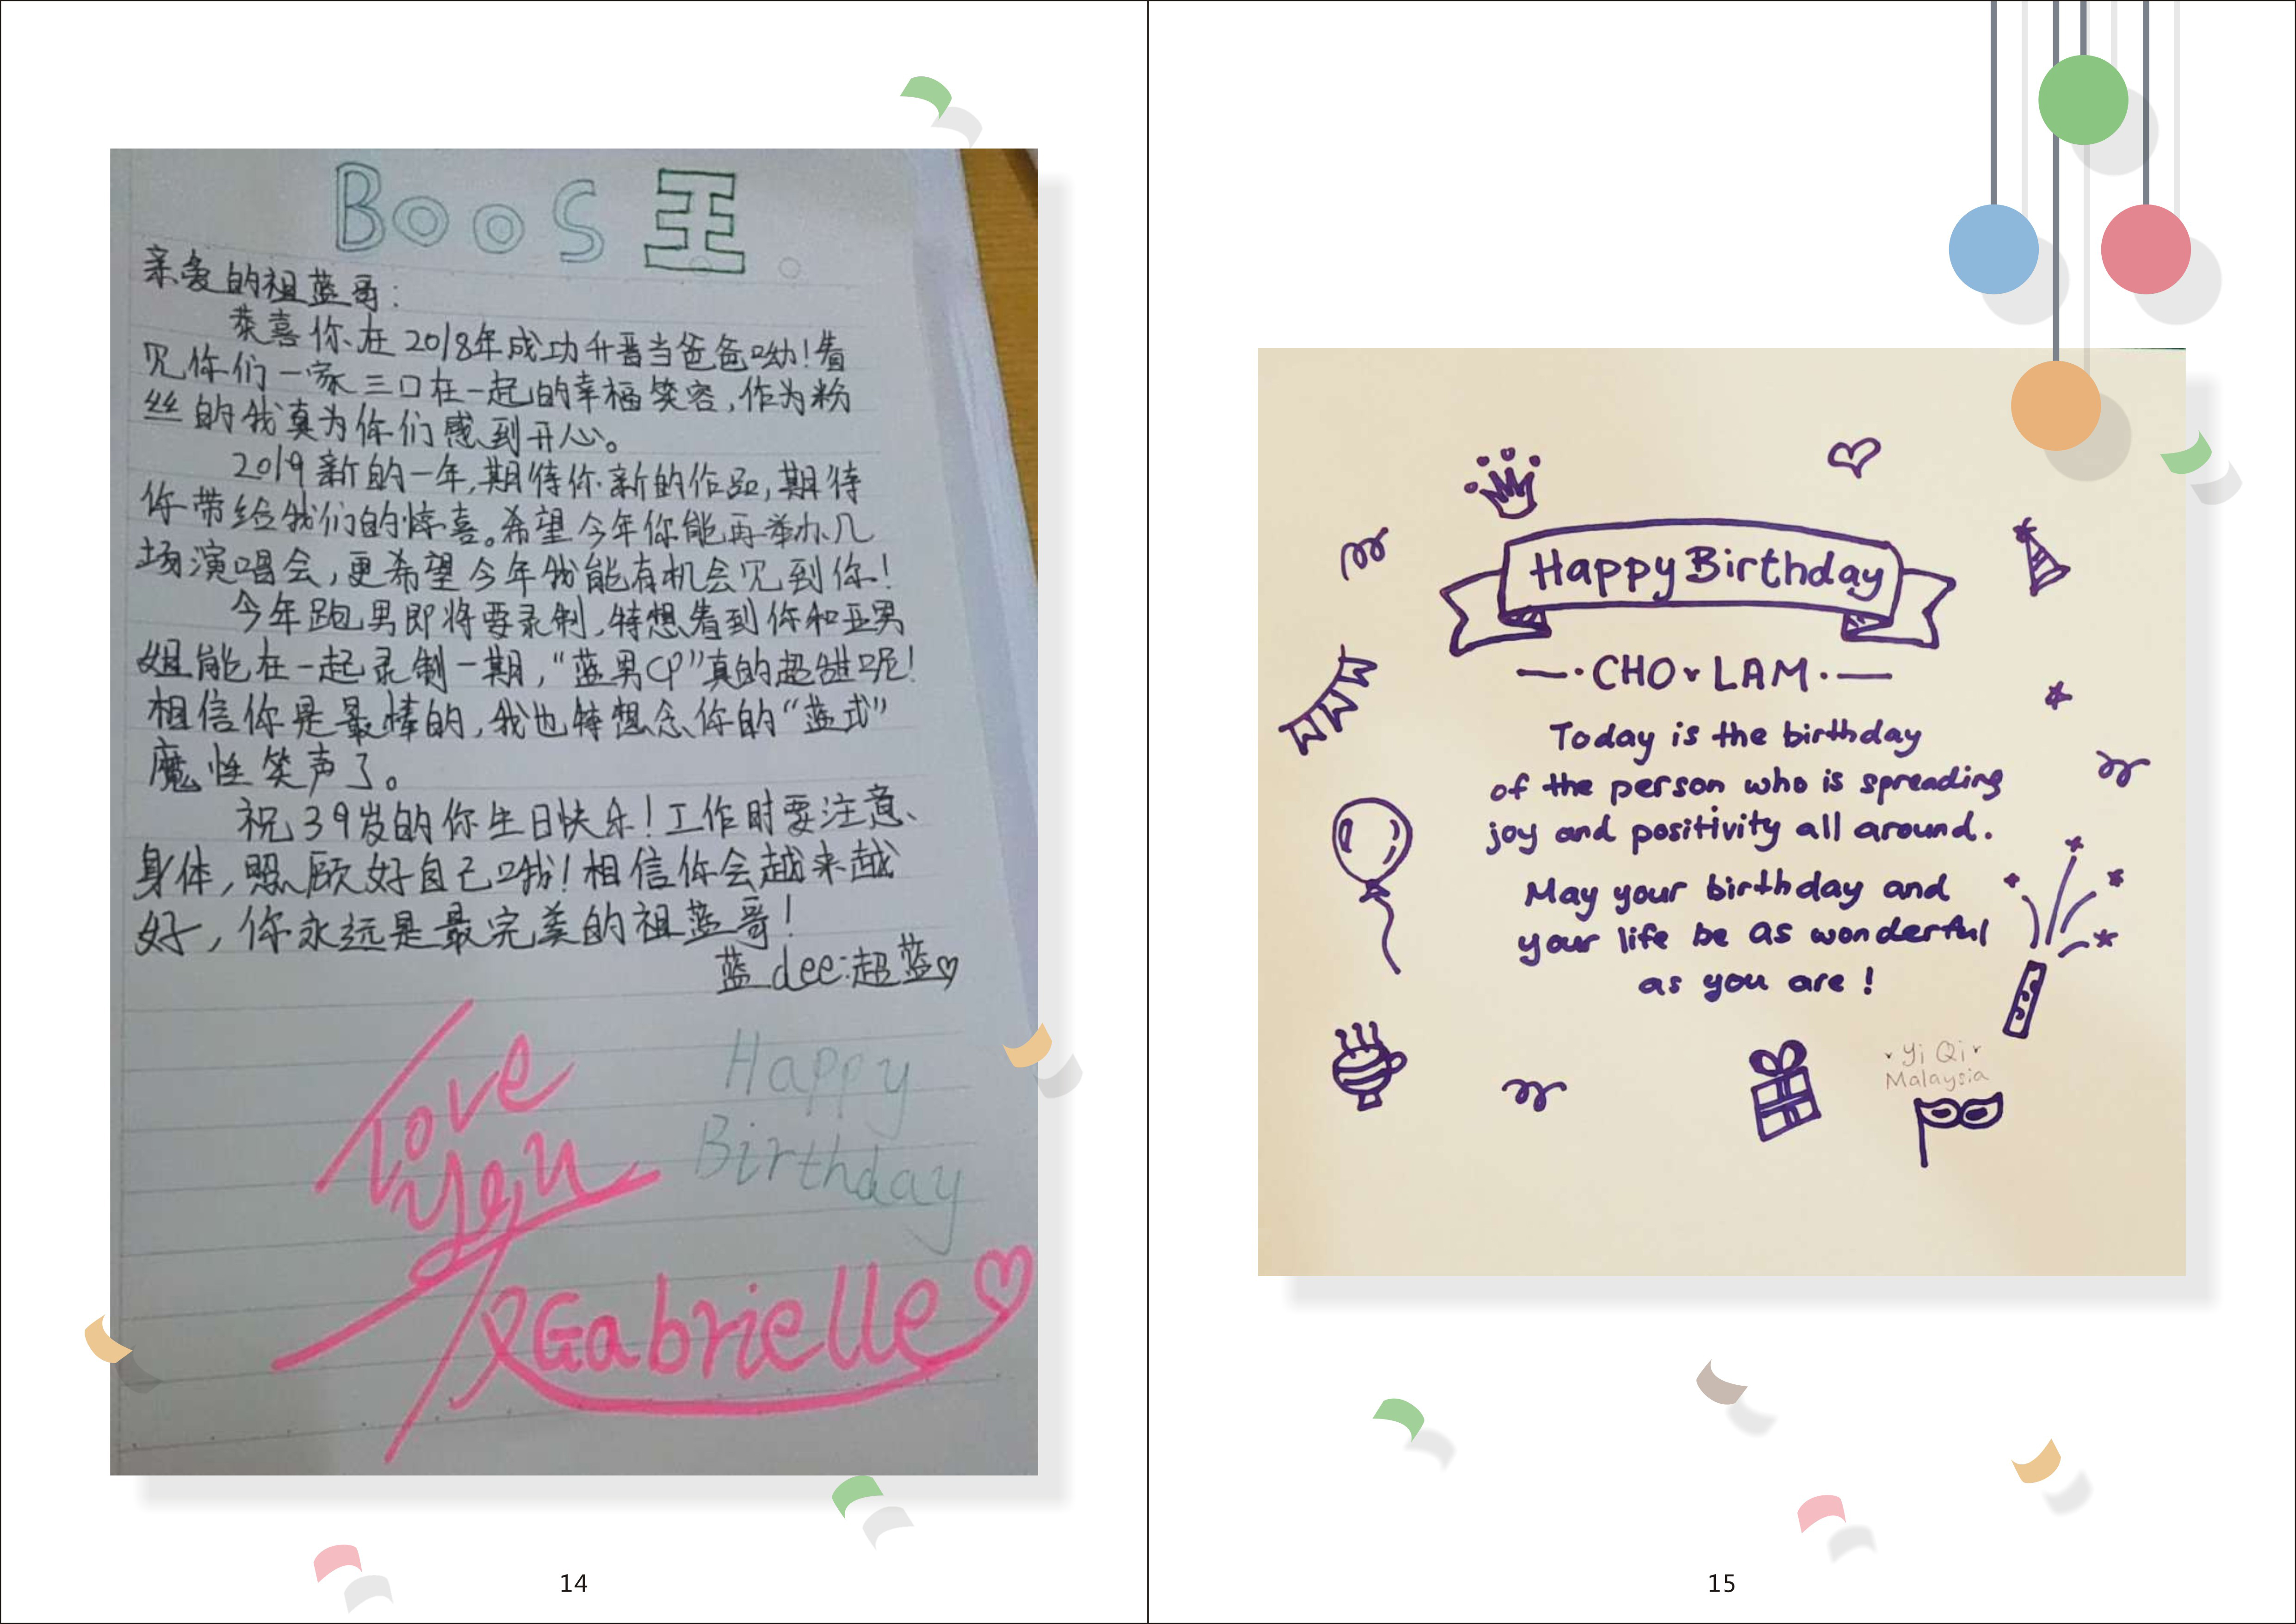 BooS 王
亲爱的祖蓝哥:
恭喜你在2018年成功升晋当爸爸呦!看
见你们一家三口在一起的幸福笑容,作为粉
丝的我真为你们感到开心。
2019新的一年,期待你新的作品,期待
你带给我们的惊喜。希望今年你能再举办几
场演唱会,更希望今年我能有机会见到你!
今年跑男即将要录制,特想看到你和亚男
姐能在一起录制一期,“蓝男CP”真的超甜呢!
相信你是最棒的,我也特想念你的“蓝式”
魔性笑声了。
祝39岁的你生日快乐!工作时要注意
身体,照顾好自己哦!相信你会越来越
好,你永远是最完美的祖蓝哥!
蓝dee:超蓝♡
Love
You
Happy
Birthday
Gabrielle♡
14
Happy Birthday
CHO LAM
Today is the birthday
of the person who is spreading
joy and positivity all around.
May your birthday and
your life be as wonderful
as you are !
Yi Qi
Malaysia
15